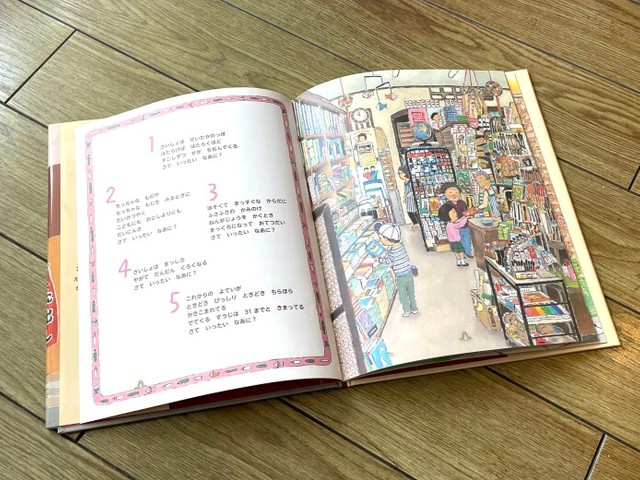 1
さいしょは せいたかのっぽ
はたらけば はたらくほど
すこしずつ せが ちぢんでくる
さて いったい なあに?
2
ちっちゃな ものや
ちっちゃな もじを みるときに
だいかつやく
こどもにも おとしよりにも
だいにんき
さて いったい なあに?
3
ほそくて まっすぐな からだに
ふさふさの かみのけ
なんがじょうを かくとき
まっくろになって おてつだい
さて いったい なあに?
4
さいしょは まっしろ
やがて だんだん くろくなる
さて いったい なあに?
5
これからの よていが
ときどき びっしり ときどき ちらほら
かきこまれてる
でてくる すうじは 31までと きまってる
さて いったい なあに?